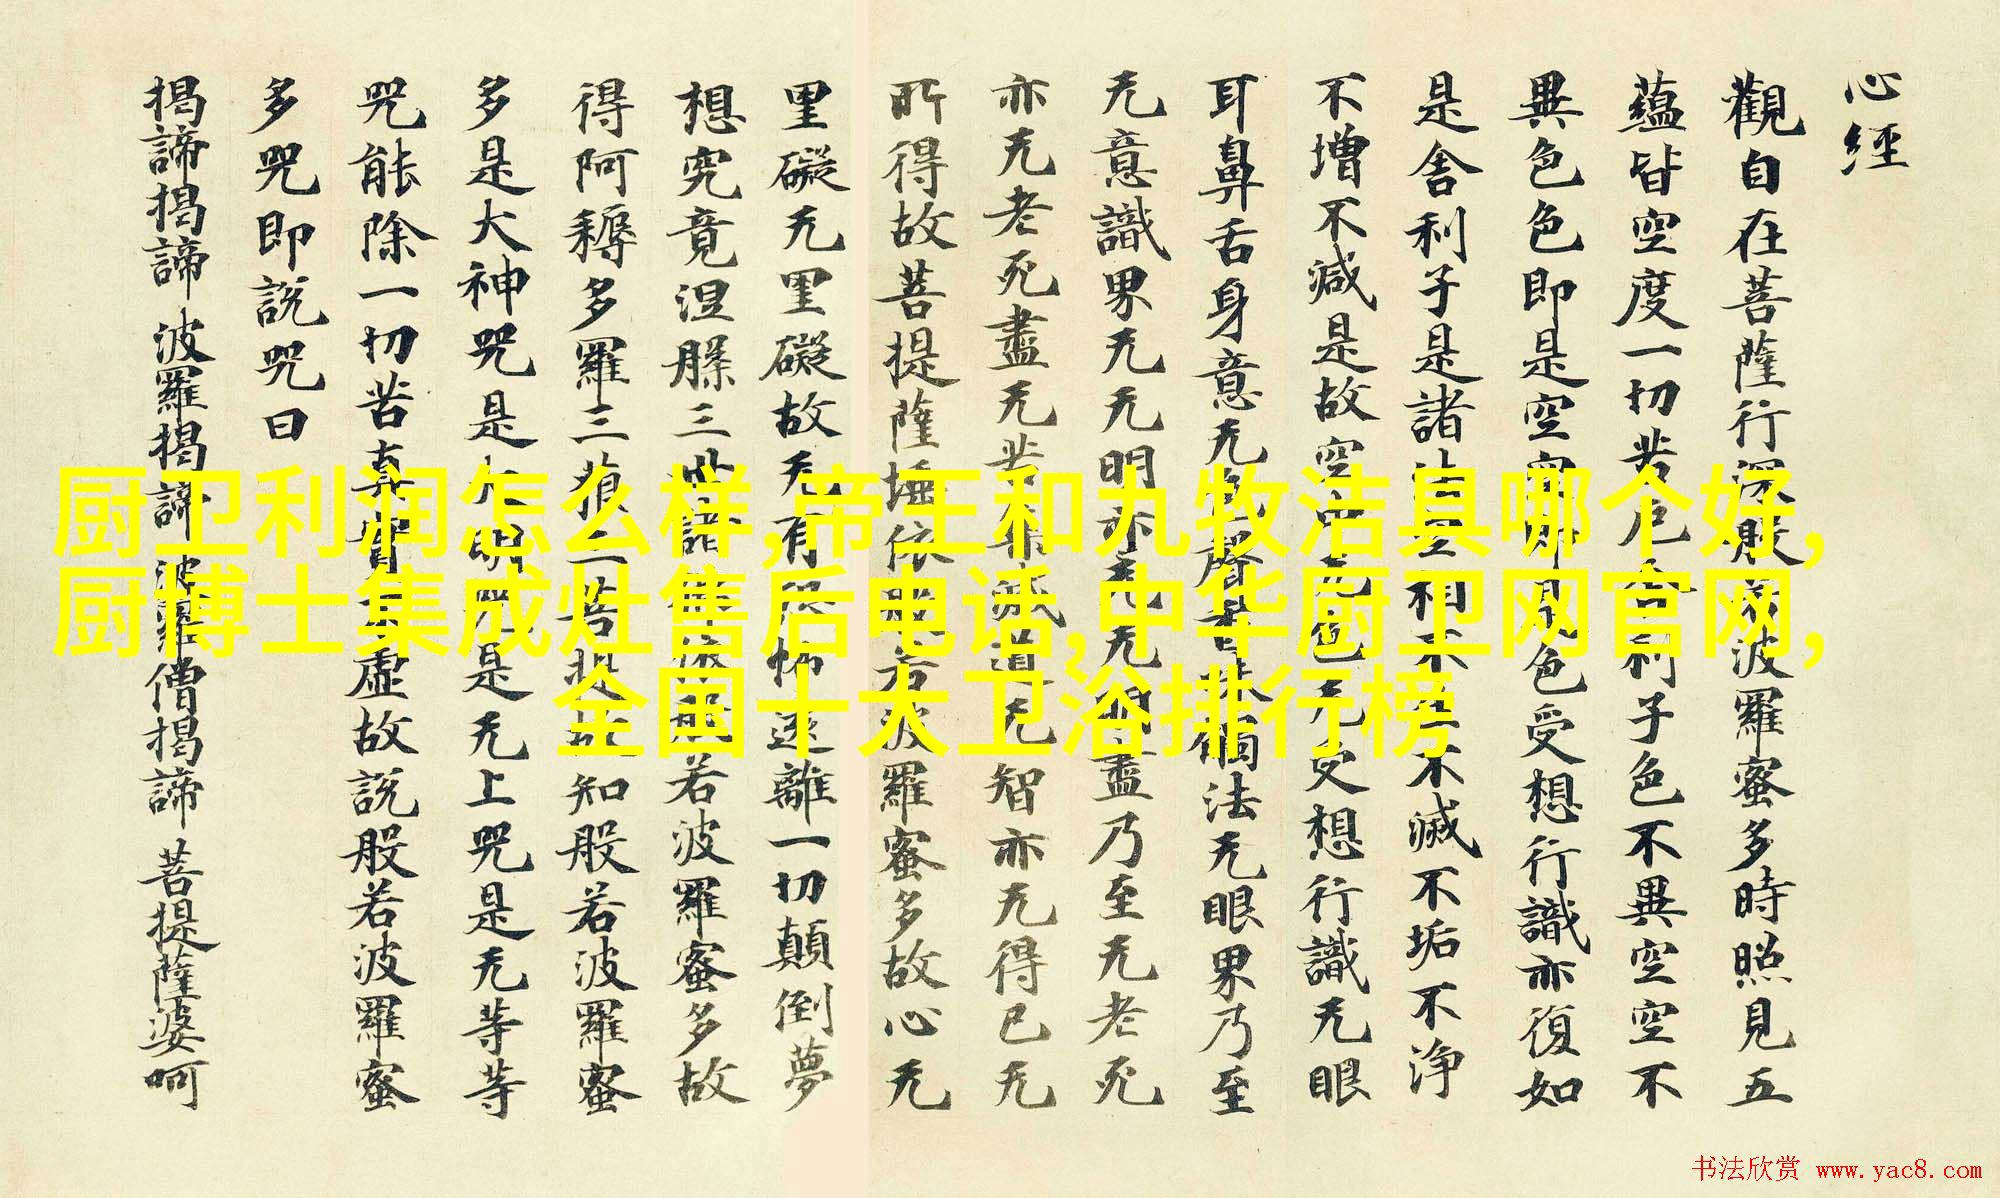 心經
觀自在菩薩行深般若波羅蜜多時照見五
蘊皆空度一切苦厄舍利子色不異空空不
異色色即是空空即是色受想行識亦復如
是舍利子是諸法空相不生不滅不垢不淨
不增不減是故空中无色无受想行識无眼
耳鼻舌身意无色聲香味觸法无眼界乃至
无意識界无无明亦无无明盡乃至无老死
亦无老死盡无苦集滅道无智亦无得已无
所得故菩提薩埵依般若波羅蜜多故心无
罣礙无罣礙故无有恐怖遠離一切顛倒夢
想究竟涅槃三世諸佛依般若波羅蜜多故
得阿耨多羅三藐三菩提故知般若波羅蜜
多是大神咒是大明咒是无上咒是无等等
咒能除一切苦真實不虛故說般若波羅蜜
多咒即說咒曰
揭諦揭諦 波羅揭諦 波羅僧揭諦 菩提薩婆呵
厨卫利润怎么样,帝王和九牧洁具哪个好,
厨博士集成灶售后电话,中华厨卫网官网,
全国十大卫浴排行榜
书法欣赏 www.yac8.com